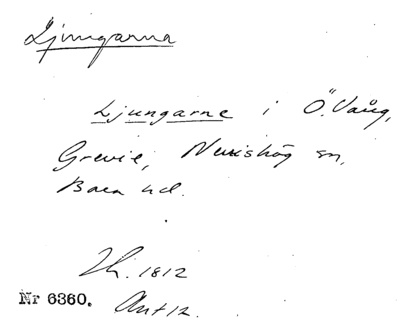 Ljungarna
Ljungarne i Ö. Vång,
Grevie, Nevishög sn,
Bara hd.
Lh. 1812
Nr 6360. Ant 12.